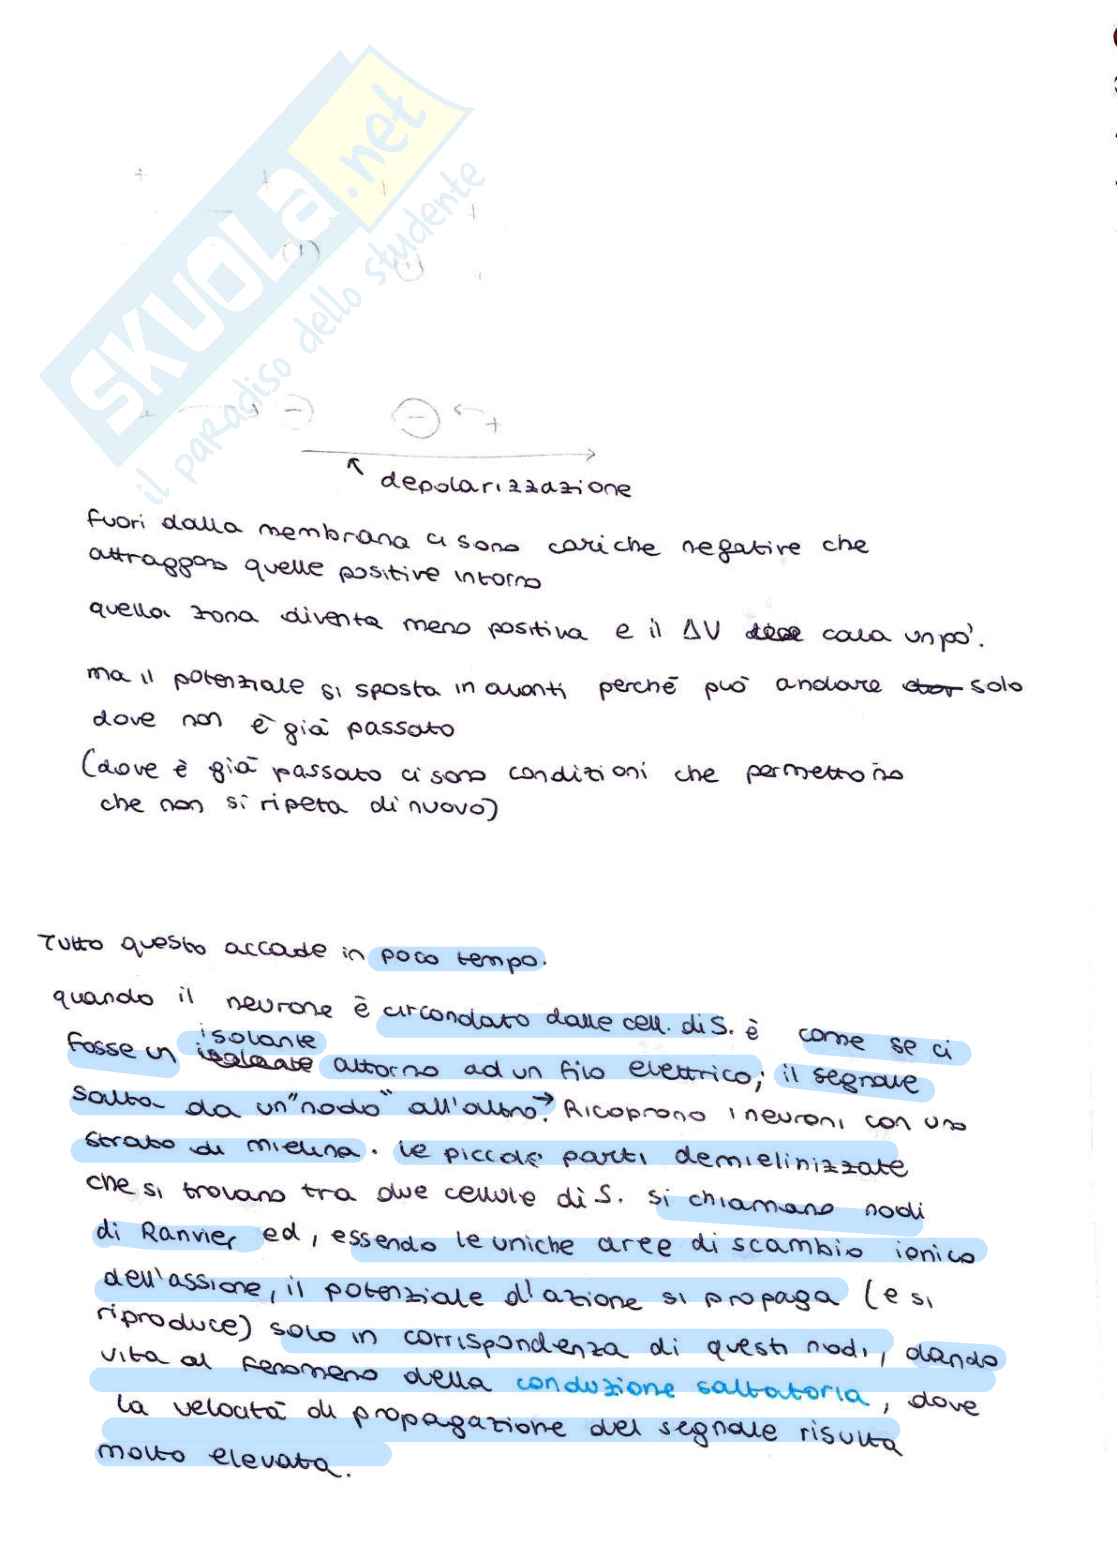 SKUOLA.net
il paradiso dello studente
depolarizzazione
fuori dalla membrana ci sono cariche negative che
attraggono quelle positive intorno
quella zona diventa meno positiva e il ΔV cala un po'.
ma il potenziale si sposta in avanti perché può andare solo
dove non è già passato
(dove è già passato ci sono condizioni che permettono
che non si ripeta di nuovo)
Tutto questo accade in poco tempo.
quando il neurone è circondato dalle cell. di S. è come se ci
isolante
fosse un attorno ad un filo elettrico; il segnale
salta da un "nodo" all'altro. → Ricoprono i neuroni con uno
strato di mielina. Le piccole parti demielinizzate
che si trovano tra due cellule di S. si chiamano nodi
di Ranvier ed, essendo le uniche aree di scambio ionico
dell'assione, il potenziale d'azione si propaga (e si
riproduce) solo in corrispondenza di questi nodi, dando
vita al fenomeno della conduzione saltatoria, dove
la velocità di propagazione del segnale risulta
molto elevata.